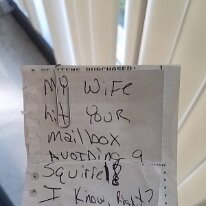 # OF ITEMS PURCHASED:
MY WiFe
hit YOUR
mailbox
AVOiDiNG A
SQuiRRel!?
I KNOW, RigHT?